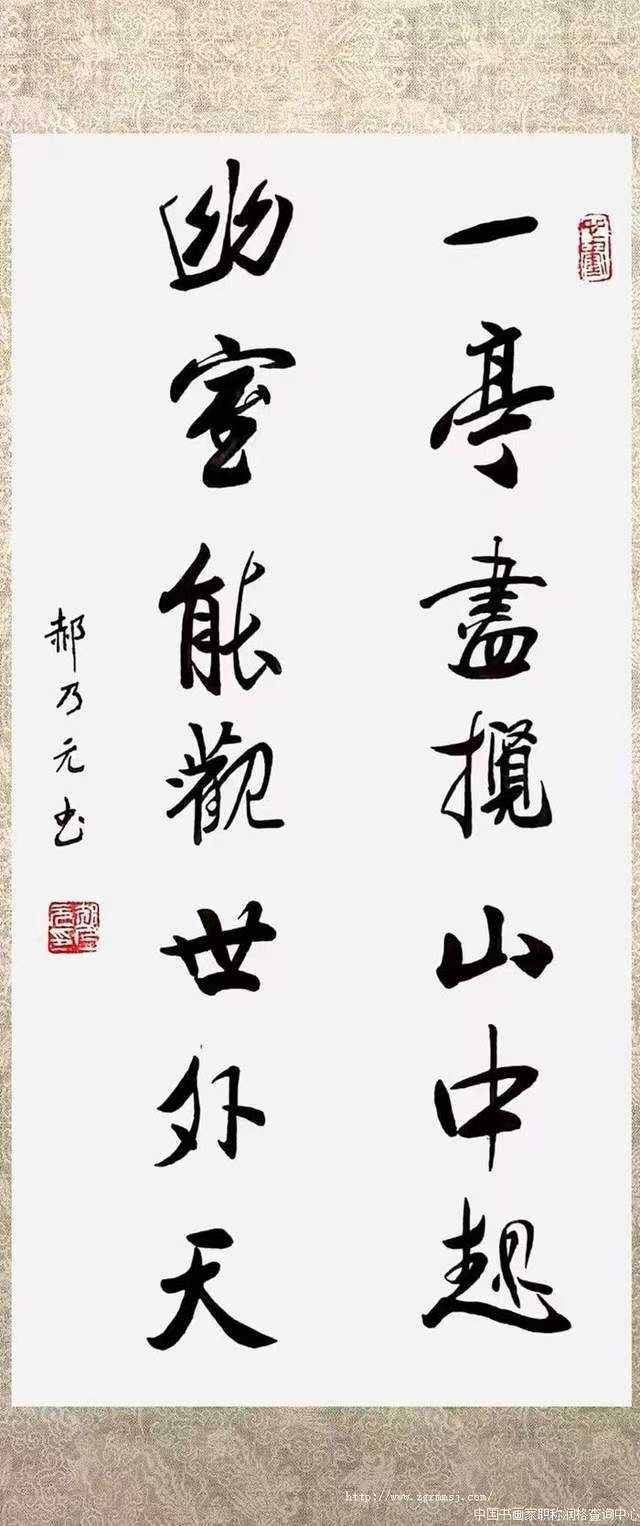 一亭盡攬山中趣
幽室能觀世外天
郝乃元书
郝乃元印
http://www.zgrmmsj.com/
中国书画家职称润格查询中心